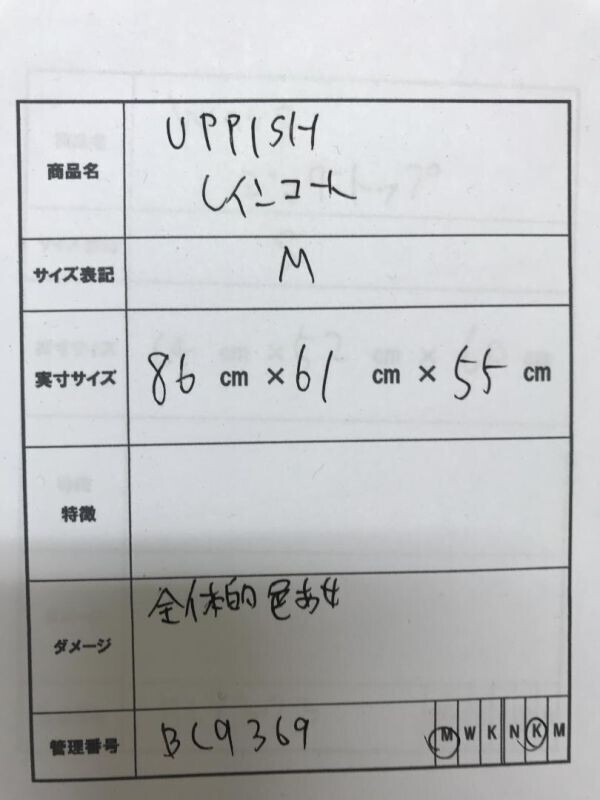 商品名 UPPISH
レインコート
サイズ表記 M
実寸サイズ 86 cm × 61 cm × 55 cm
特徴
ダメージ 全体的色あせ
管理番号 BC9369 M W K N K M